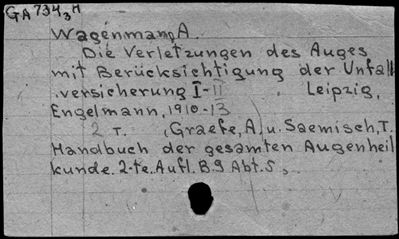 GA 734,3 H
Wagenmann, A.
Die Verletzungen des Auges
mit Berücksichtigung der Unfall
versicherung I-II . Leipzig,
Engelmann, 1910-13
2 T. (Graefe, A. u. Saemisch, T.
Handbuch der gesamten Augenheil
kunde. 2-te. Aufl. B. 9 Abt. 5,